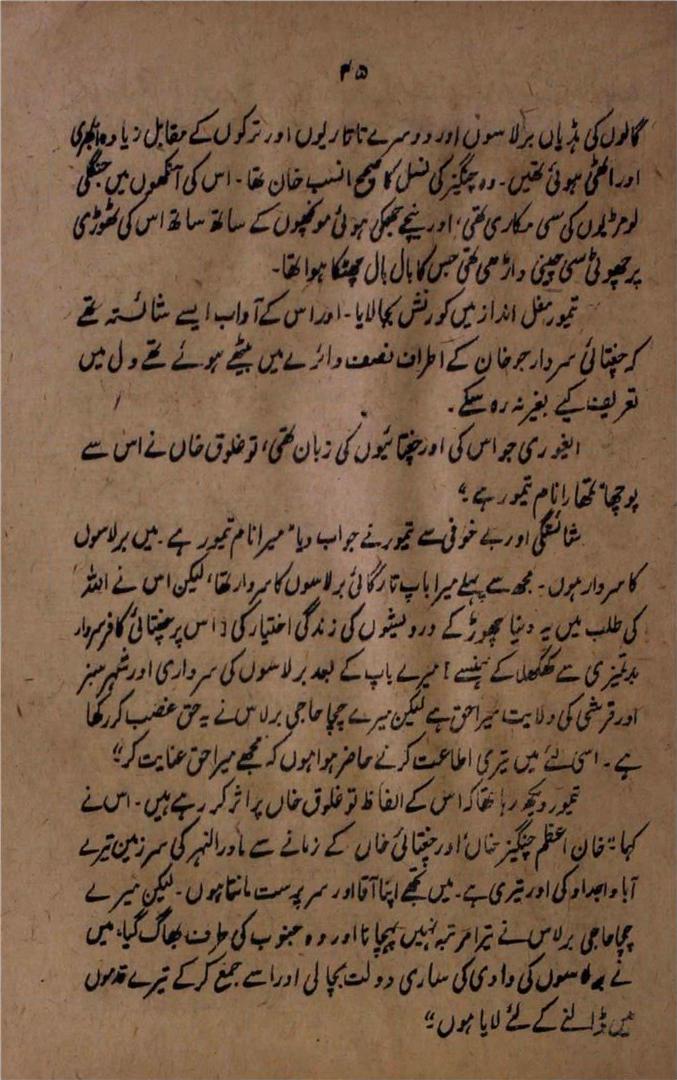 ۴۵
گالوں کی ہڈیاں برلاسوں اور دوسرے تاتاریوں اور ترکوں کے مقابل زیادہ ابھری
اور اٹھی ہوئی تھیں۔ وہ چنگیز کی نسل کا صحیح النسب خان تھا۔ اس کی آنکھوں میں جنگلی
لومڑیوں کی سی مکاری تھی، اور نیچے جھکی ہوئی مونچھوں کے ساتھ ساتھ اس کی ٹھوڑی
پر چھوٹی سی چینی داڑھی تھی جس کا بال بال چھٹکا ہوا تھا۔
تیمور مغل انداز میں کورنش بجا لایا۔ اور اس کے آداب ایسے شائستہ تھے
کہ چغتائی سردار جو خان کے اطراف نصف دائرے میں بیٹھے ہوئے تھے دل میں
تعریف کیے بغیر نہ رہ سکے۔
ایغوری جو اس کی اور چغتائیوں کی زبان تھی، توغلوق خاں نے اس سے
پوچھا "تمھارا نام تیمور ہے"
شائستگی اور بے خوفی سے تیمور نے جواب دیا "میرا نام تیمور ہے۔ میں برلاسوں
کا سردار ہوں۔ مجھ سے پہلے میرا باپ تارگائی برلاسوں کا سردار تھا، لیکن اس نے اللہ
کی طلب میں یہ دنیا چھوڑ کے درویشوں کی زندگی اختیار کی (اس پر چغتائی کافر سردار
بدتمیزی سے کھلکھلا کے ہنسے) میرے باپ کے بعد برلاسوں کی سرداری اور شہر سبز
اور قرشی کی ولایت میرا حق ہے لیکن میرے چچا حاجی برلاس نے یہ حق غصب کر رکھا
ہے۔ اسی لئے میں تیری اطاعت کرنے حاضر ہوا ہوں کہ مجھے میرا حق عنایت کر"
تیمور دیکھ رہا تھا کہ اس کے الفاظ توغلوق خاں پر اثر کر رہے ہیں۔ اس نے
کہا "خان اعظم چنگیز خاں اور چغتائی خاں کے زمانے سے ماورالنہر کی سرزمین تیرے
آبا و اجداد کی اور تیری ہے۔ میں تجھے اپنا آقا اور سرپرست مانتا ہوں۔ لیکن میرے
چچا حاجی برلاس نے تیرا مرتبہ نہیں پہچانا اور وہ جنوب کی طرف بھاگ گیا، میں
نے برلاسوں کی وادی کی ساری دولت بچا لی اور اسے جمع کر کے تیرے قدموں
میں ڈالنے کے لئے لایا ہوں"